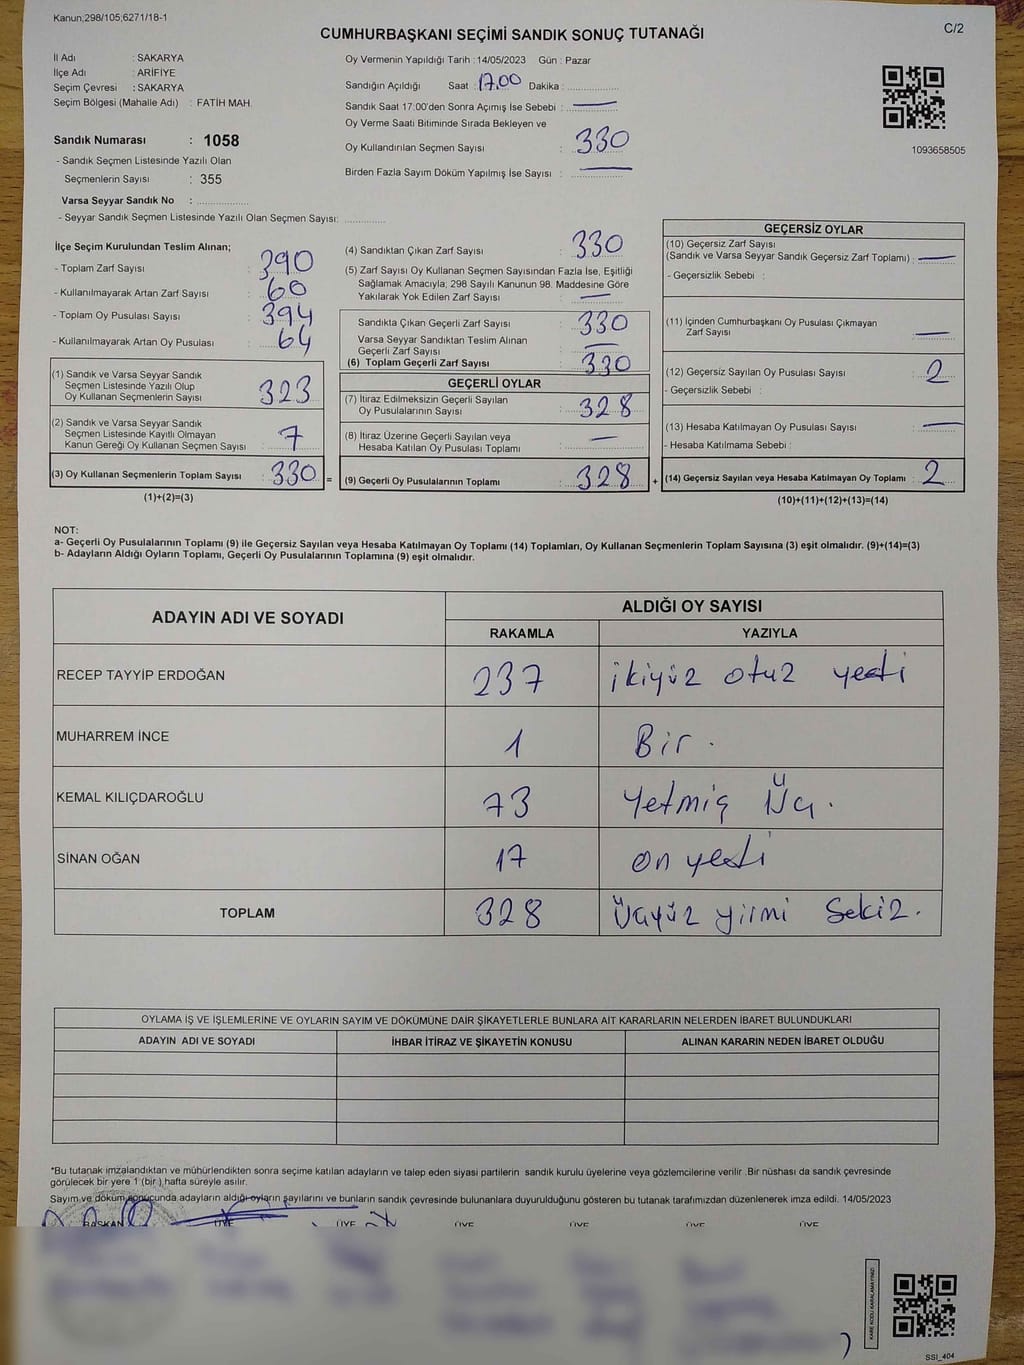 Kanun;298/105;6271/18-1
C/2
CUMHURBAŞKANI SEÇİMİ SANDIK SONUÇ TUTANAĞI
İl Adı : SAKARYA
İlçe Adı : ARİFİYE
Seçim Çevresi : SAKARYA
Seçim Bölgesi (Mahalle Adı) : FATİH MAH.
Sandık Numarası : 1058
- Sandık Seçmen Listesinde Yazılı Olan
Seçmenlerin Sayısı : 355
Varsa Seyyar Sandık No :
- Seyyar Sandık Seçmen Listesinde Yazılı Olan Seçmen Sayısı:
Oy Vermenin Yapıldığı Tarih : 14/05/2023 Gün : Pazar
Sandığın Açıldığı Saat : 17.00 Dakika :
Sandık Saat 17:00'den Sonra Açımış İse Sebebi : —
Oy Verme Saati Bitiminde Sırada Bekleyen ve
Oy Kullandırılan Seçmen Sayısı : 330
Birden Fazla Sayım Döküm Yapılmış İse Sayısı : —
1093658505
İlçe Seçim Kurulundan Teslim Alınan;
- Toplam Zarf Sayısı : 390
- Kullanılmayarak Artan Zarf Sayısı : 60
- Toplam Oy Pusulası Sayısı : 394
- Kullanılmayarak Artan Oy Pusulası : 64
(1) Sandık ve Varsa Seyyar Sandık
Seçmen Listesinde Yazılı Olup
Oy Kullanan Seçmenlerin Sayısı : 323
(2) Sandık ve Varsa Seyyar Sandık
Seçmen Listesinde Kayıtlı Olmayan
Kanun Gereği Oy Kullanan Seçmen Sayısı : 7
(3) Oy Kullanan Seçmenlerin Toplam Sayısı : 330 =
(1)+(2)=(3)
(4) Sandıktan Çıkan Zarf Sayısı : 330
(5) Zarf Sayısı Oy Kullanan Seçmen Sayısından Fazla İse, Eşitliği
Sağlamak Amacıyla; 298 Sayılı Kanunun 98. Maddesine Göre
Yakılarak Yok Edilen Zarf Sayısı : —
Sandıkta Çıkan Geçerli Zarf Sayısı : 330
Varsa Seyyar Sandıktan Teslim Alınan
Geçerli Zarf Sayısı : —
(6) Toplam Geçerli Zarf Sayısı : 330
GEÇERLİ OYLAR
(7) İtiraz Edilmeksizin Geçerli Sayılan
Oy Pusulalarının Sayısı : 328
(8) İtiraz Üzerine Geçerli Sayılan veya
Hesaba Katılan Oy Pusulası Toplamı : —
(9) Geçerli Oy Pusulalarının Toplamı : 328 +
GEÇERSİZ OYLAR
(10) Geçersiz Zarf Sayısı
(Sandık ve Varsa Seyyar Sandık Geçersiz Zarf Toplamı) : —
- Geçersizlik Sebebi :
(11) İçinden Cumhurbaşkanı Oy Pusulası Çıkmayan
Zarf Sayısı : —
(12) Geçersiz Sayılan Oy Pusulası Sayısı : 2
- Geçersizlik Sebebi :
(13) Hesaba Katılmayan Oy Pusulası Sayısı : —
- Hesaba Katılmama Sebebi :
(14) Geçersiz Sayılan veya Hesaba Katılmayan Oy Toplamı : 2
(10)+(11)+(12)+(13)=(14)
NOT:
a- Geçerli Oy Pusulalarının Toplamı (9) ile Geçersiz Sayılan veya Hesaba Katılmayan Oy Toplamı (14) Toplamları, Oy Kullanan Seçmenlerin Toplam Sayısına (3) eşit olmalıdır. (9)+(14)=(3)
b- Adayların Aldığı Oyların Toplamı, Geçerli Oy Pusulalarının Toplamına (9) eşit olmalıdır.
ADAYIN ADI VE SOYADI
ALDIĞI OY SAYISI
RAKAMLA YAZIYLA
RECEP TAYYİP ERDOĞAN 237 ikiyüz otuz yedi
MUHARREM İNCE 1 Bir.
KEMAL KILIÇDAROĞLU 73 Yetmiş Üç.
SİNAN OĞAN 17 on yedi
TOPLAM 328 üçyüz yirmi Sekiz.
OYLAMA İŞ VE İŞLEMLERİNE VE OYLARIN SAYIM VE DÖKÜMÜNE DAİR ŞİKAYETLERLE BUNLARA AİT KARARLARIN NELERDEN İBARET BULUNDUKLARI
ADAYIN ADI VE SOYADI İHBAR İTİRAZ VE ŞİKAYETİN KONUSU ALINAN KARARIN NEDEN İBARET OLDUĞU
*Bu tutanak imzalandıktan ve mühürlendikten sonra seçime katılan adayların ve talep eden siyasi partilerin sandık kurulu üyelerine veya gözlemcilerine verilir. Bir nüshası da sandık çevresinde
görülecek bir yere 1 (bir) hafta süreyle asılır.
Sayım ve döküm sonucunda adayların aldığı oyların sayılarını ve bunların sandık çevresinde bulunanlara duyurulduğunu gösteren bu tutanak tarafımızdan düzenlenerek imza edildi. 14/05/2023
BAŞKAN ÜYE ÜYE ÜYE ÜYE ÜYE ÜYE
KARE KODU KARALAMAYINIZ!
SSI_404